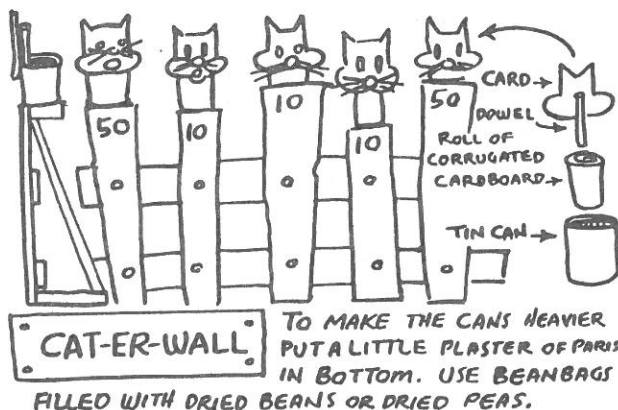 50
10
10
10
50
CARD
DOWEL
ROLL OF
CORRUGATED
CARDBOARD
TIN CAN
CAT-ER-WALL
TO MAKE THE CANS HEAVIER
PUT A LITTLE PLASTER OF PARIS
IN BOTTOM. USE BEANBAGS
FILLED WITH DRIED BEANS OR DRIED PEAS.